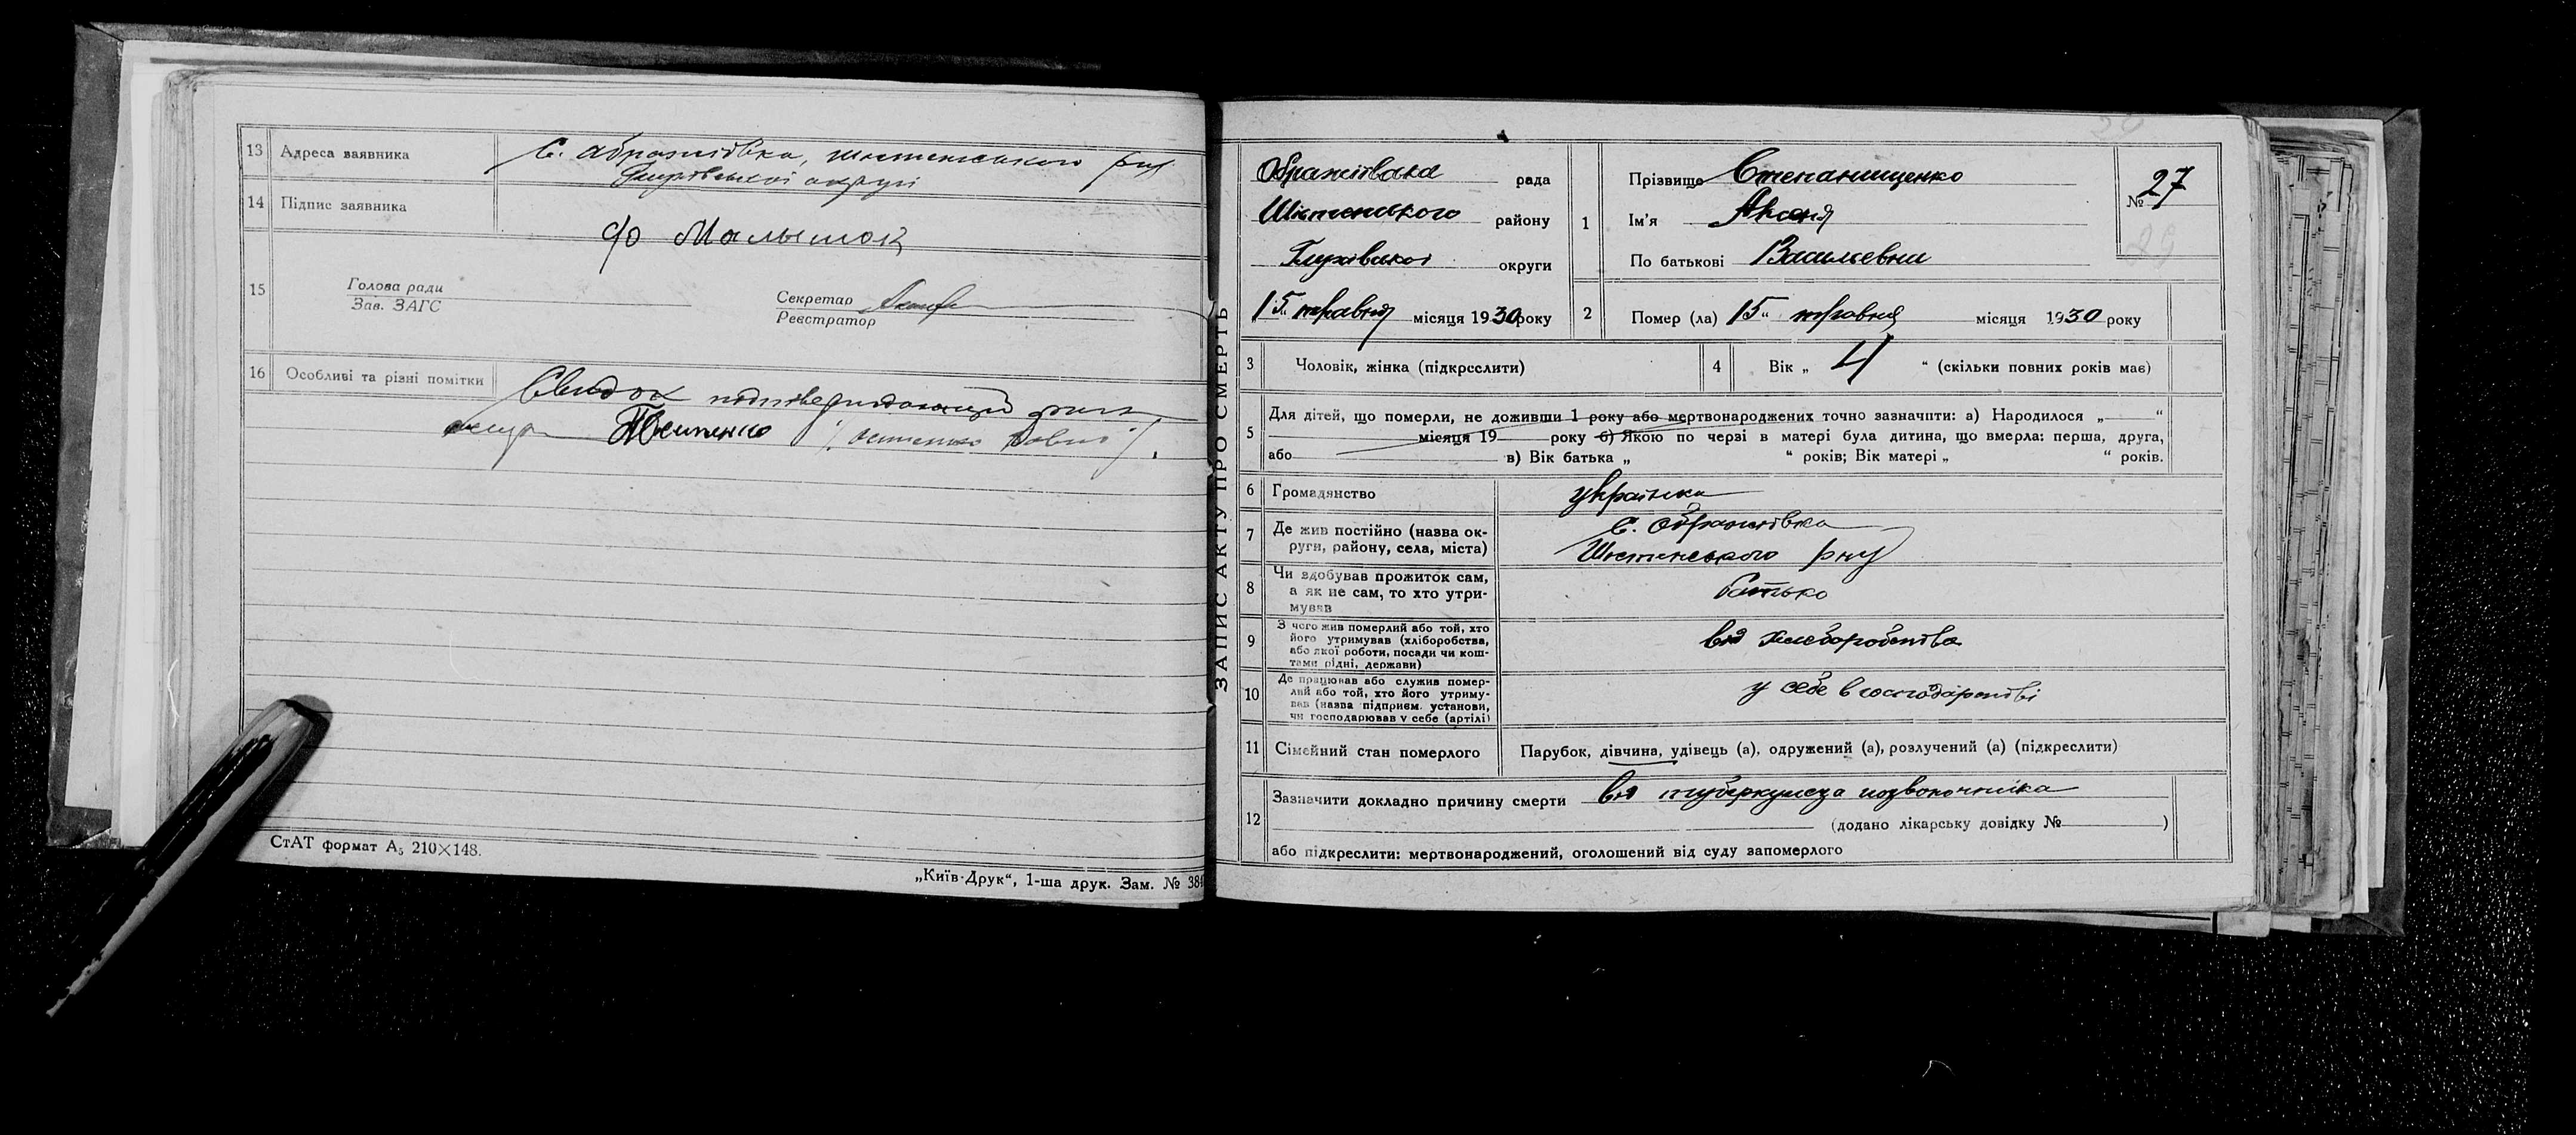 13 Адреса заявника С. Ображіївка, Шостенського р-ну
Глухівської округи
14 Підпис заявника
Ф Малышок
15 Голова ради
Зав. ЗАГС
Секретар
Реєстратор
16 Особливі та різні помітки Свидок подтверждающий
СтАТ формат А₅ 210×148.
„Київ-Друк“, 1-ша друк. Зам. № 384
ЗАПИС АКТУ ПРО СМЕРТЬ
Ображіївська рада
Шостенського району
Глухівської округи
15„ травня місяця 1930 року
1 Прізвище Степанищенко
Ім'я
По батькові Васильевна
№ 27
29
2 Помер (ла) 15„ травня місяця 1930 року
3 Чоловік, жінка (підкреслити)
4 Вік „ 4 “ (скільки повних років має)
5 Для дітей, що померли, не доживши 1 року або мертвонароджених точно зазначити: а) Народилося „ “
місяця 19 року б) Якою по черзі в матері була дитина, що вмерла: перша, друга,
або в) Вік батька „ “ років; Вік матері „ “ років.
6 Громадянство українка
7 Де жив постійно (назва ок-
руги, району, села, міста)
С. Ображіївка
Шостенського р-ну
8 Чи здобував прожиток сам,
а як не сам, то хто утри-
мував
батько
9 З чого жив померлий або той, хто
його утримував (хліборобства,
або якої роботи, посади чи кош-
тами рідні, держави)
від хлеборобства
10 Де працював або служив помер-
лий або той, хто його утриму-
вав (назва підприєм. установи,
чи господарював у себе (артілі)
у себе в господарстві
11 Сімейний стан померлого Парубок, дівчина, удівець (а), одружений (а), розлучений (а) (підкреслити)
12 Зазначити докладно причину смерти від туберкулеза позвоночника
(додано лікарську довідку № )
або підкреслити: мертвонароджений, оголошений від суду запомерлого